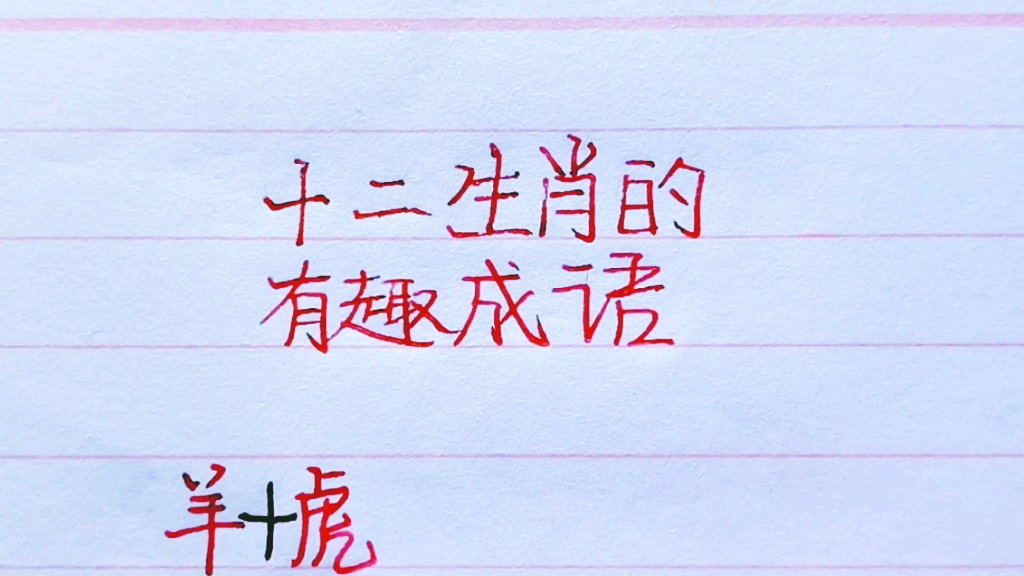 十二生肖的
有趣成语
羊+虎